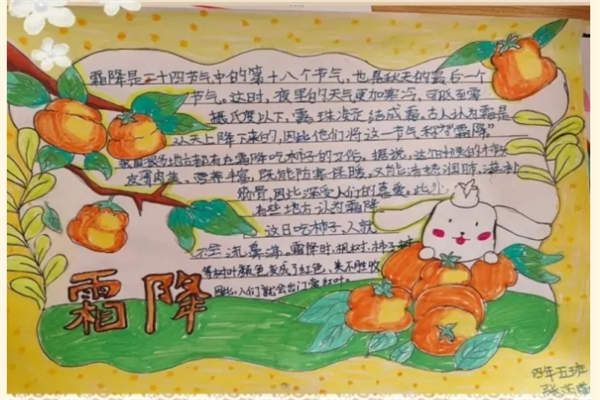 霜降是二十四节气中的第十八个节气,也是秋天的最后一个
节气。这时,夜里的天气更加寒冷,可低至零
摄氏度以下,露珠凝结成霜。古人认为霜是
从天上降下来的,因此他们将这一节气称为“霜降”
我国很多地方都有在霜降吃柿子的习俗。据说,这个时候的柿子
皮薄肉美、营养丰富,既能防寒保暖,又能清热润肺,滋补
筋骨,因此深受人们的喜爱。此外
有些地方认为霜降
这日吃柿子,入秋
不会流鼻涕。霜降时,枫树、柿子树
等树叶颜色变成了红色,美不胜收
因此,人们就会出门赏红叶。
霜降
四年五班